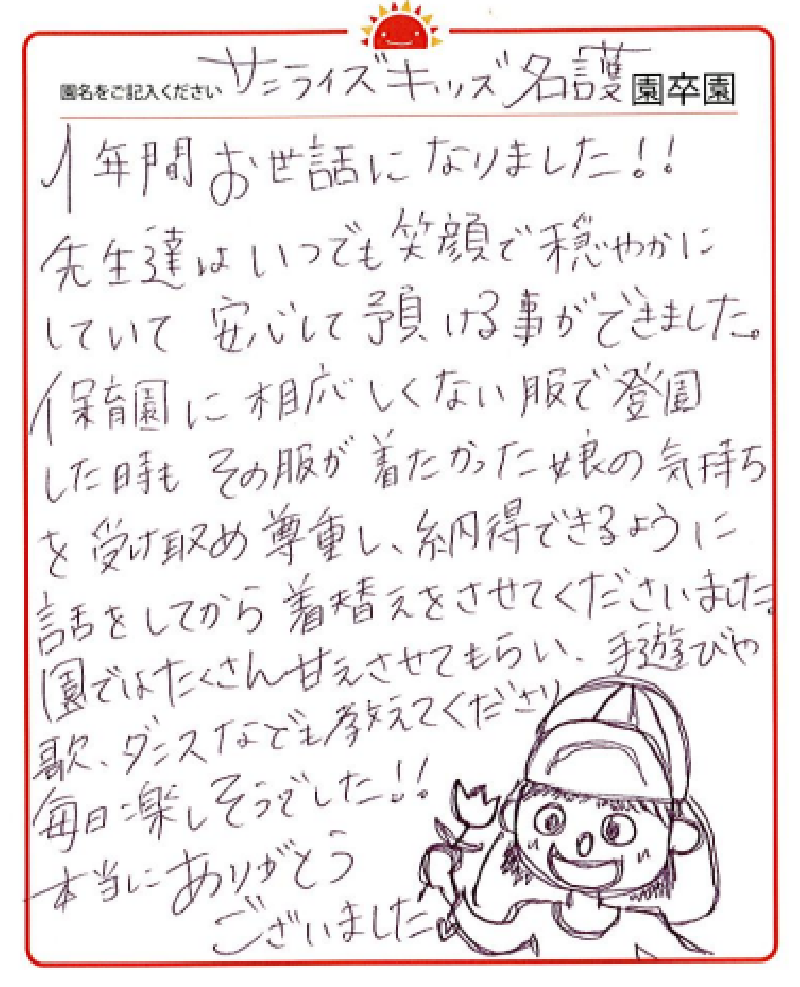 園名をご記入ください サンライズキッズ名護 園卒園
1年間お世話になりました!!
先生達はいつでも笑顔で穏やかに
していて安心して預ける事ができました。
保育園に相応しくない服で登園
した時もその服が着たかった娘の気持ち
を受け取め尊重し、納得できるように
話をしてから着替えをさせてくださいました。
園ではたくさん甘えさせてもらい、手遊びや
歌、ダンスなども教えてくださり
毎日楽しそうでした!!
本当にありがとう
ございました。